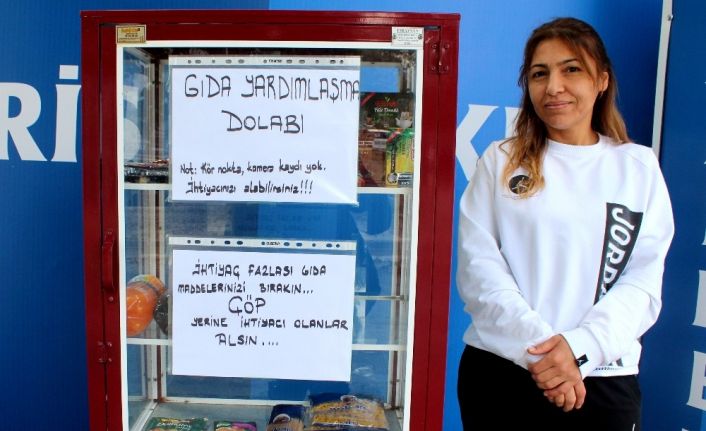 GIDA YARDIMLAŞMA
DOLABI
Not: Kör nokta, kamera kaydı yok.
İhtiyacınızı alabilirsiniz!!!
İHTİYAÇ FAZLASI GIDA
MADDELERİNİZİ BIRAKIN...
ÇÖP
YERİNE İHTİYACI OLANLAR
ALSIN....
RİS
JORD